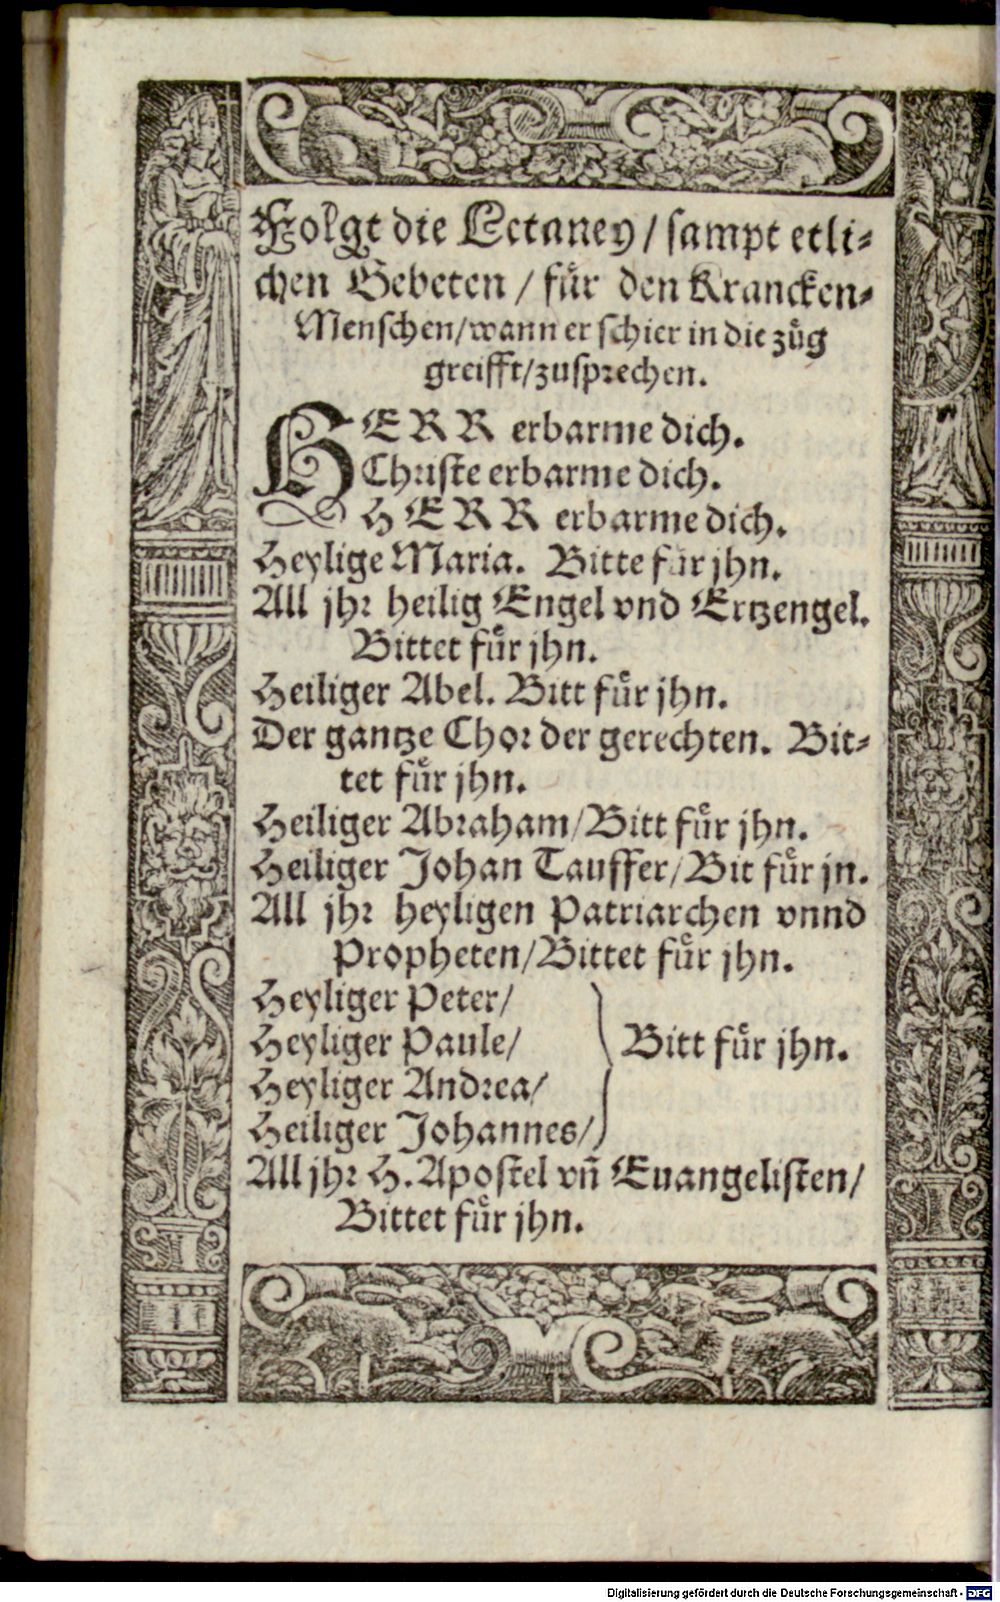 Folgt die Letaney / sampt etli⸗
chen Gebeten / fuͤr den Krancken⸗
Menschen/wann er schier in die zuͤg
greifft/zusprechen.
HERR erbarme dich.
Christe erbarme dich.
HERR erbarme dich.
Heylige Maria. Bitte fuͤr jhn.
All jhr heilig Engel vnd Ertzengel.
Bittet fuͤr jhn.
Heiliger Abel. Bitt fuͤr jhn.
Der gantze Chor der gerechten. Bit⸗
tet fuͤr jhn.
Heiliger Abraham/Bitt fuͤr jhn.
Heiliger Johan Tauffer/Bit fuͤr jn.
All jhr heyligen Patriarchen vnnd
Propheten/Bittet fuͤr jhn.
Heyliger Peter/
Heyliger Paule/ Bitt fuͤr jhn.
Heyliger Andrea/
Heiliger Johannes/
All jhr H. Apostel vñ Euangelisten/
Bittet fuͤr jhn.
Digitalisierung gefördert durch die Deutsche Forschungsgemeinschaft - DFG